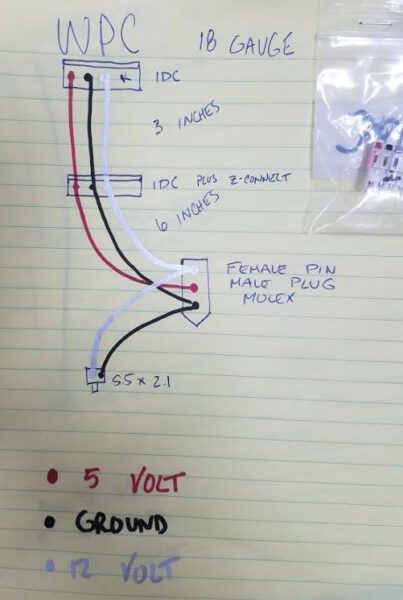 WPC
18 GAUGE
IDC
3 INCHES
IDC PLUS Z-CONNECT
6 INCHES
FEMALE PIN
MALE PLUG
MOLEX
5.5 x 2.1
5 VOLT
GROUND
12 VOLT